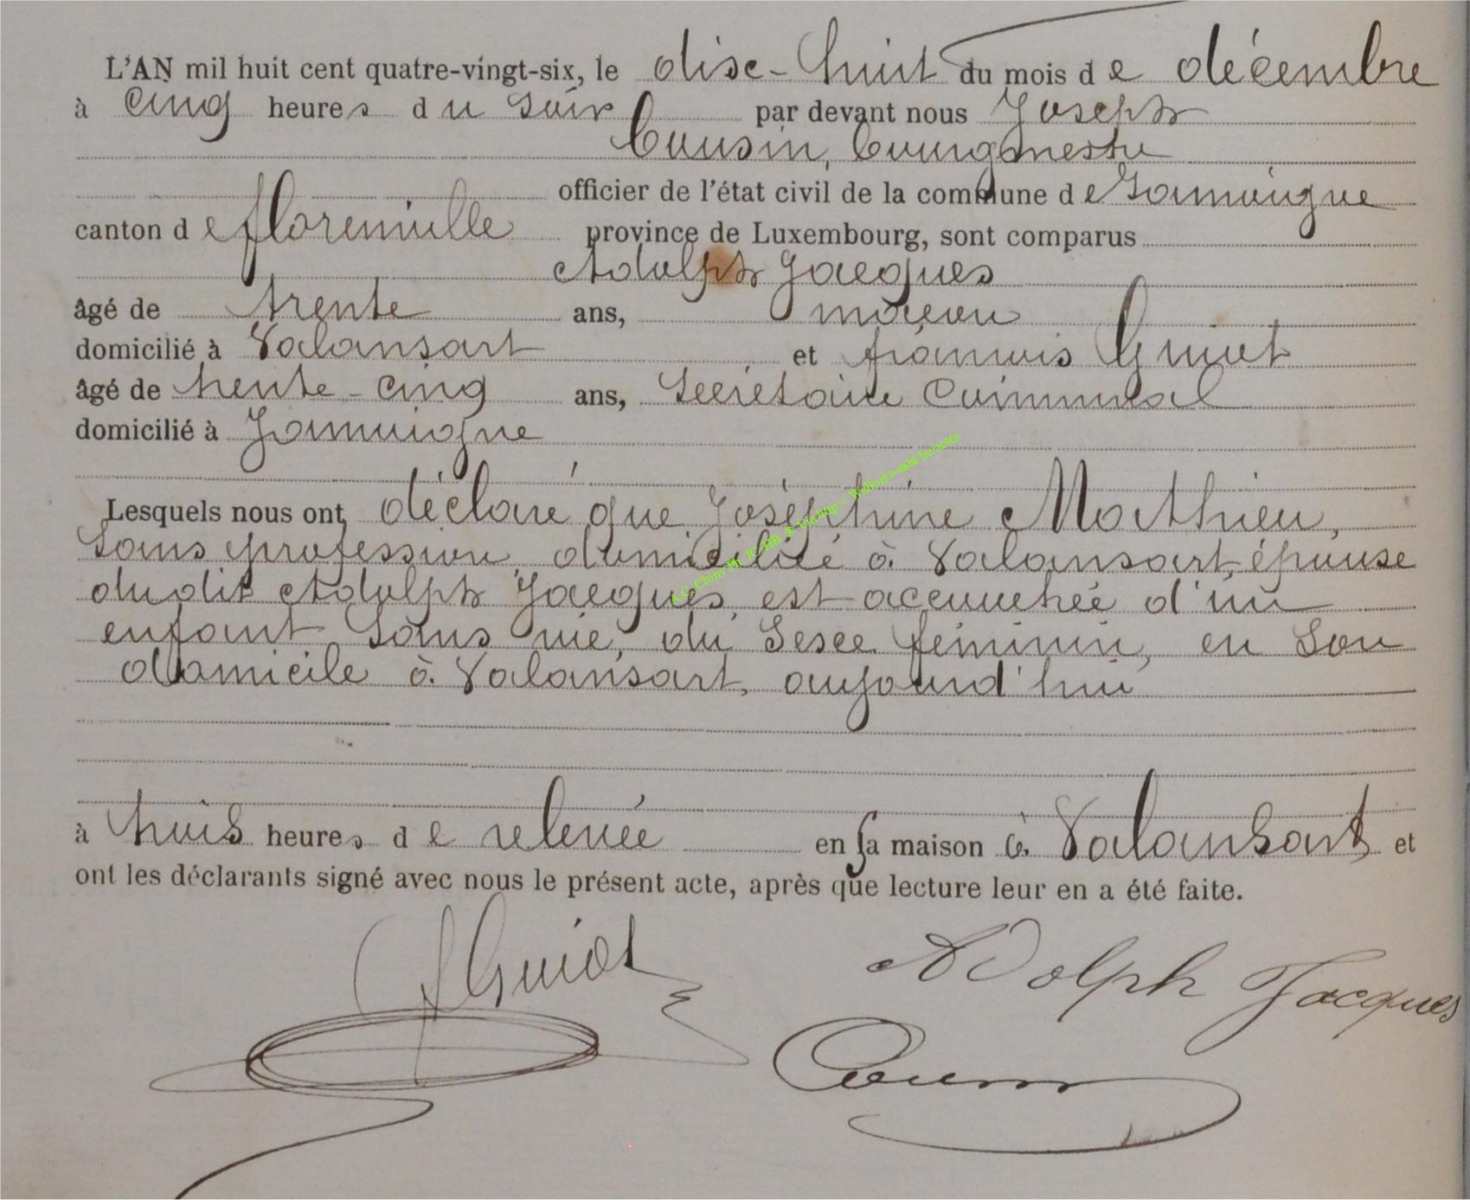 L'AN mil huit cent quatre-vingt-six, le dix-huit du mois de décembre
à cinq heures du soir par devant nous Joseph
Cousin, bourgmestre
officier de l'état civil de la commune de Jamoigne
canton de florenville province de Luxembourg, sont comparus
Adolph Jacques
âgé de trente ans, maçon
domicilié à Valansart et françois Guiot
âgé de trente-cinq ans, Secrétaire Communal
domicilié à Jamoigne
Lesquels nous ont déclaré que Joséphine Mathieu,
sans profession domiciliée à Valansart, épouse
dudit Adolph Jacques, est accouchée d'un
enfant sans vie, du Sexe féminin, en son
domicile à Valansart, aujourd'hui
à trois heures de relevée en sa maison à Valansart et
ont les déclarants signé avec nous le présent acte, après que lecture leur en a été faite.
f Guiot
Adolph Jacques
Cousin